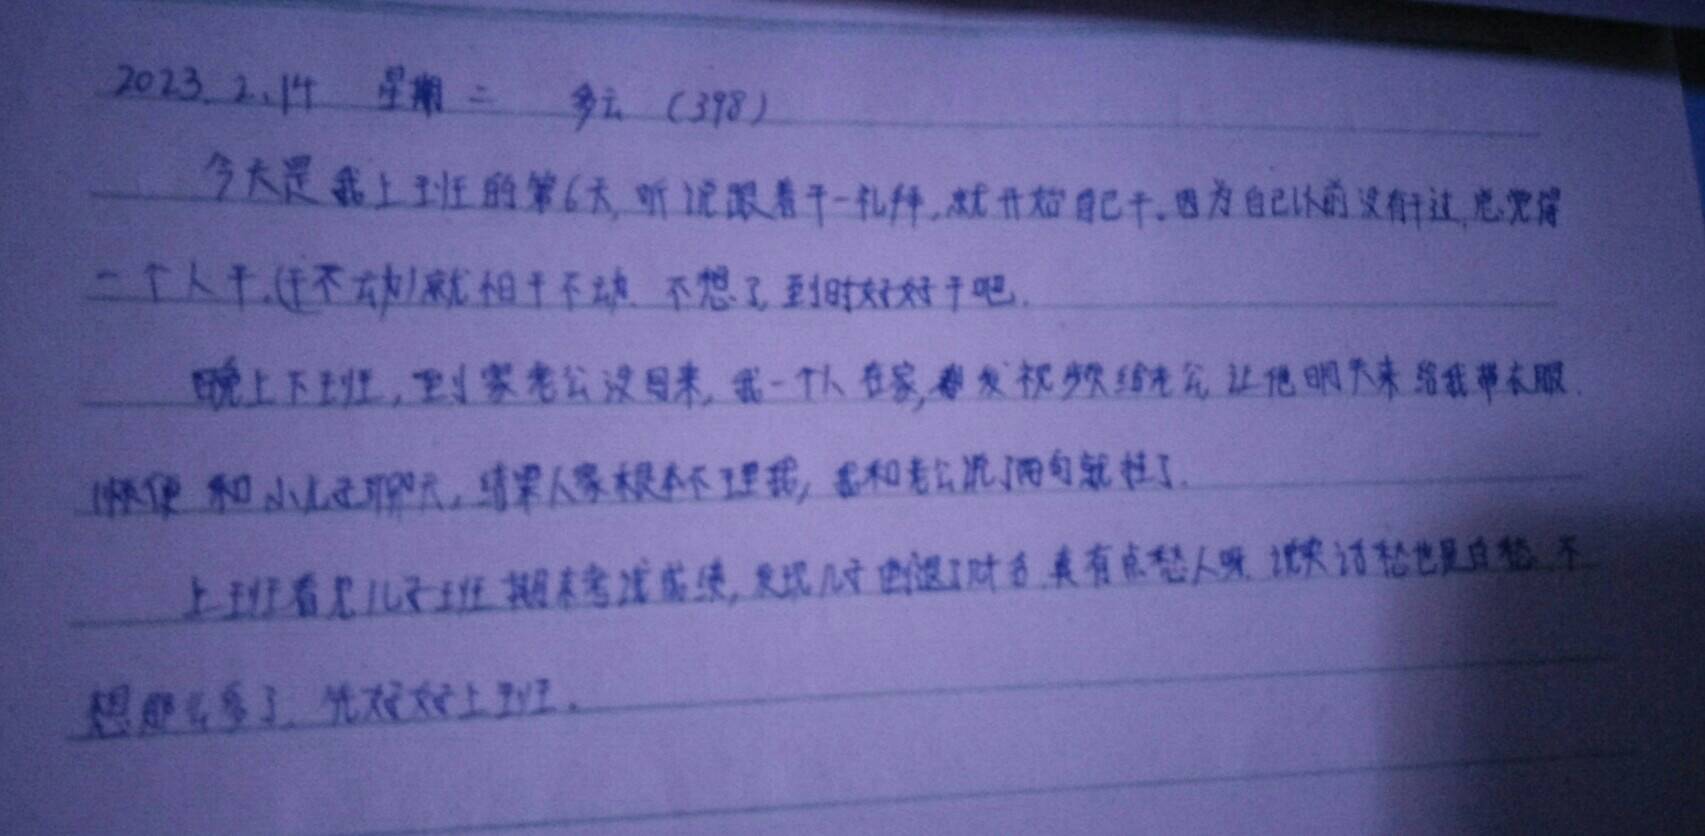 2023.2.14 星期二 多云（398）
今天是我上班的第6天,听说跟着干一礼拜,就开始自己干.因为自己以前没有干过,总觉得
一个人干.(干不动)就怕干不动.不想了,到时好好干吧.
晚上下班,到家老公没回来,我一个人在家,发视频给老公,让他明天来给我带衣服.
顺便和小儿子聊天,结果人家根本不理我,我和老公说了两句就挂了.
上班看见儿子班期末考试成绩,发现儿子倒退了 真有点愁人呀.说实话愁也是白愁.不
想那么多了.先好好上班.